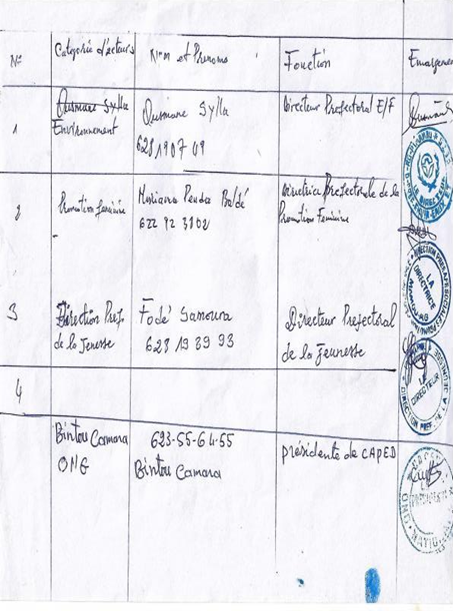 N° Catégorie d'acteurs Nom et Prenoms Fonction Emargement
1
Ousmane Sylla
Environnement
Ousmane Sylla
628 1907 09
Directeur Prefectoral E/F
2
Promotion feminine
Mariama Penda Baldé
622 92 3102
Directrice Prefectorale de la
Promotion Feminine
LA
DIRECTRICE
3
Direction Pref.
de la Jeunesse
Fodé Samoura
623 19 39 93
Directeur Prefectoral
de la Jeunesse
LE
DIRECTEUR
4
Bintou Camara
ONG
623-55-64-55
Bintou Camara
présidente de CAPED